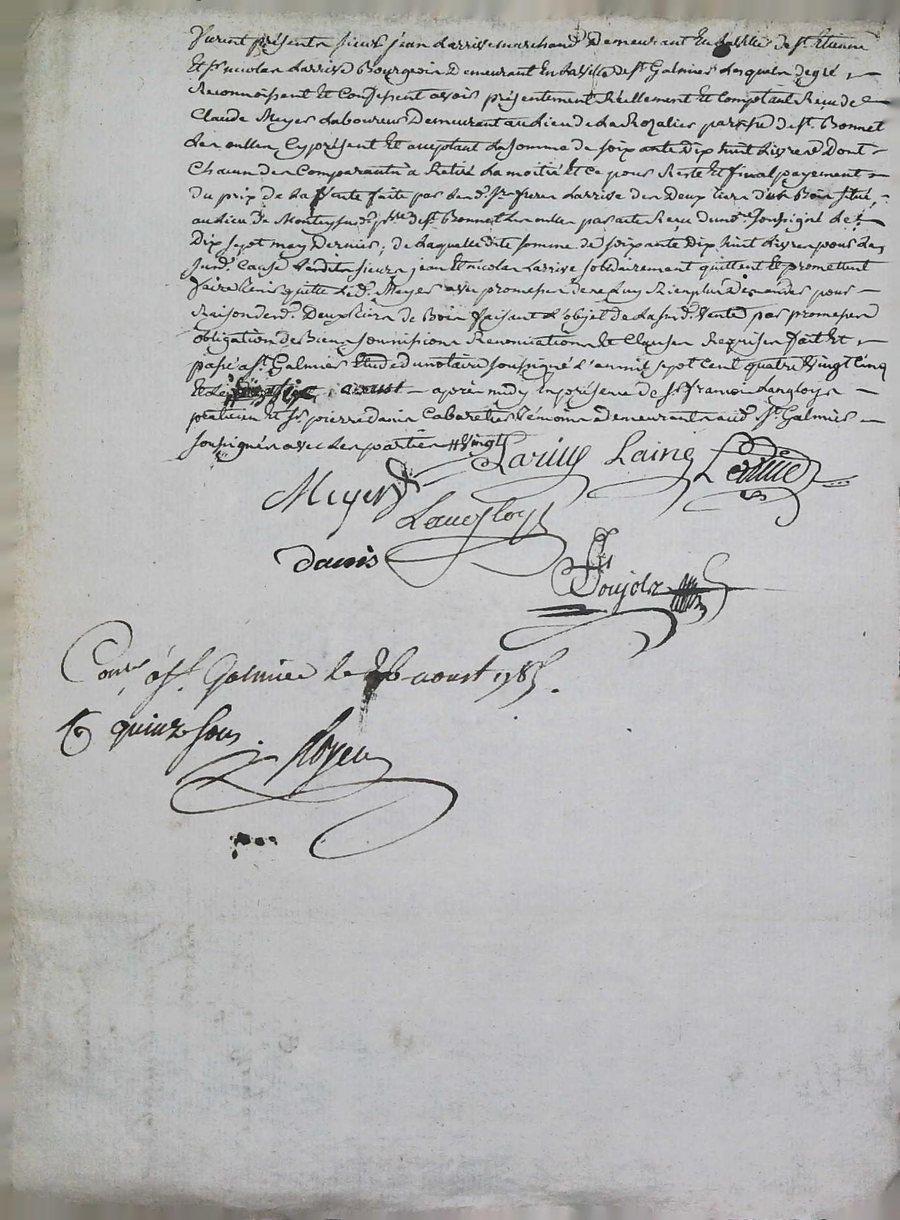 Furent présents sieurs jean Larrive marchand Demeurant En la ville de St. Etienne
Et Sr. nicolas Larrive Bourgeois Demeurant En la ville de St. Galmier Lesquels de gré
Reconnoissent Et Confessent avoir présentement Réellement Et Comptant Reçu de
Claude Meyer Laboureur Demeurant au Lieu de La Rozalier parsse de St. Bonnet
Les oulles Cy présent Et acceptant La somme de soixante Dix huit Livres Dont
Chacun des Comparants a Retiré La moitié Et Ce pour Reste Et final payement
du prix de La Vente faite par Les d. Srs freres Larrive des Deux tiers d'un Bois situé
au Lieu de sud. psse de St. Bonnet Les oulles par acte Reçu du no.re soussigné Le
Dix sept may Dernier, de Laquelle dite somme de soixante Dix huit Livres pour La
susd. Cause Lesdits sieurs jean Et nicolas Larrive solidairement quittent Et promettent
faire tenir quitte Led. Meyer avec promesse de ne Luy Rien plus Demander pour
Raison desd. Deux tiers de Bois faisant L'objet de La susd. Vente par promesses
obligation de Biens soumissions Renonciations Et Clauses Requises fait Et
passé a St. Galmier Etude du notaire soussigné L'an mil sept Cent quatre Vingt Cinq
Et Le aoust après midy En présence de Sr. françois Langloys
praticien Et Sr. pierre danis Cabaretier témoins Demeurants aud. St. Galmier
soussignés avec Les parties # Vingt
Larive Laine Larive
Meyer
Langloys
danis
Poujolz
Conlé à St. Galmier le 26 aoust 1785.
quinze sous. Royen